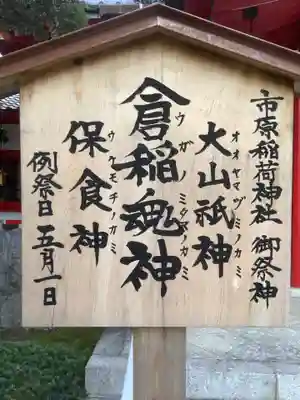 市原稲荷神社 御祭神
大山祇神
オオヤマヅミノカミ
倉稲魂神
ウガノミタマノカミ
保食神
ウケモチカミ
例祭日 五月一日